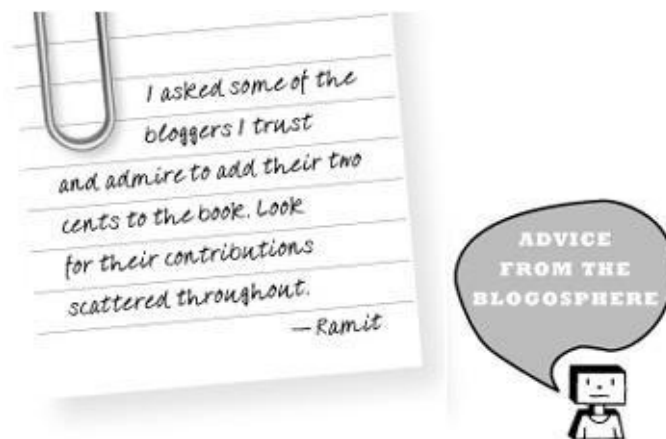 I asked some of the
bloggers I trust
and admire to add their two
cents to the book. Look
for their contributions
scattered throughout.
—Ramit
ADVICE
FROM THE
BLOGOSPHERE